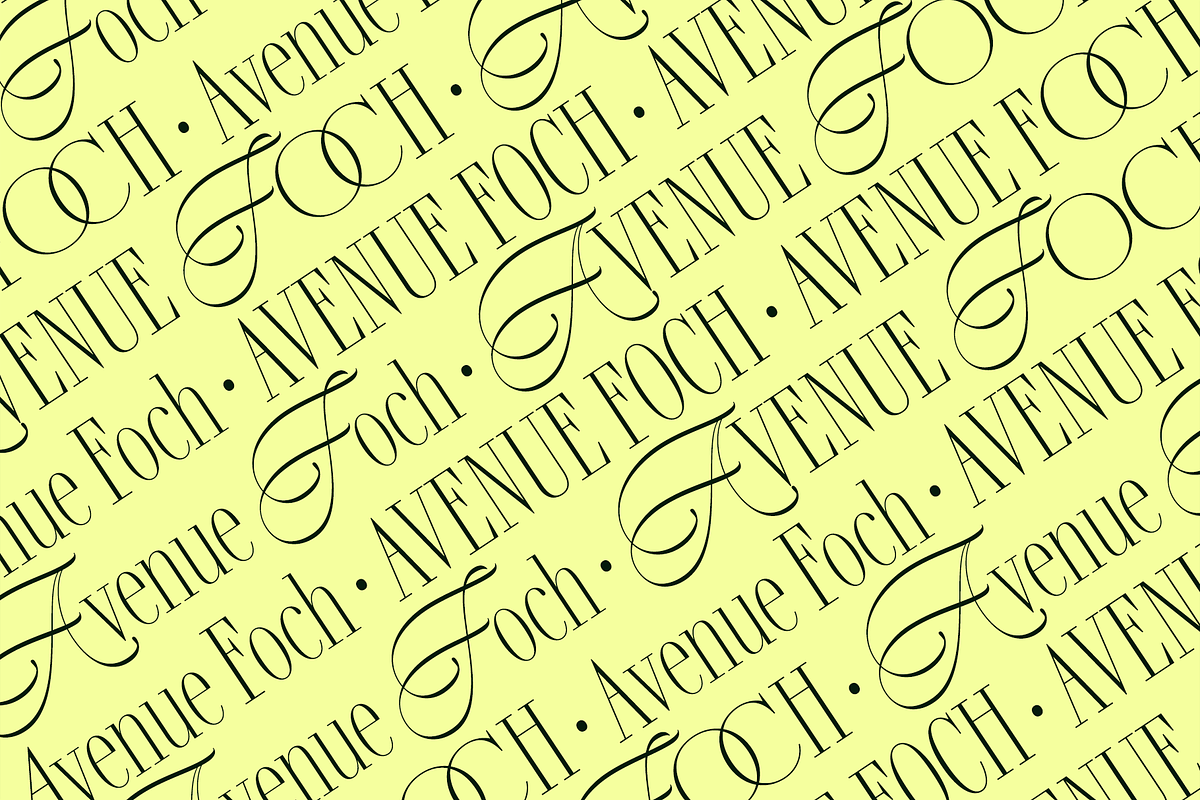 Foch
OCH • Avenue
AVENUE FOCH • Av
nue Foch • AVENUE FOCH • AVENUE
Avenue Foch • AVENUE FOC
Avenue Foch • AVENUE FOCH • AVENUE FOCH
Avenue Foch • AVENUE FOCH
OCH • Avenue Foch • AVENUE F
FOCH • Avenue
FOCH • AVEN
VENUE